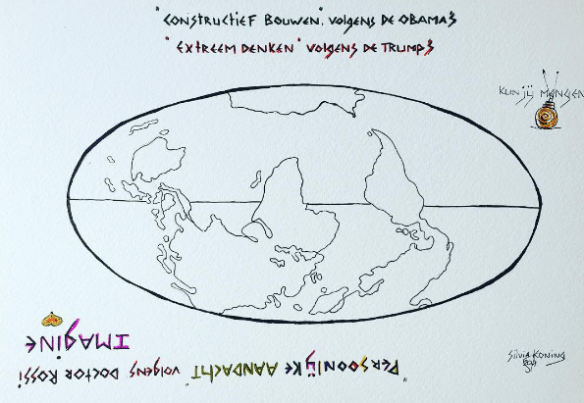 "CONSTRUCTIEF BOUWEN", VOLGENS DE OBAMA'S
"EXTREEM DENKEN" VOLGENS DE TRUMP'S
KUN JIJ MENGEN
"PERSOONLIJKE AANDACHT" VOLGENS DOCTOR ROSSI
IMAGINE
Silvia Koning